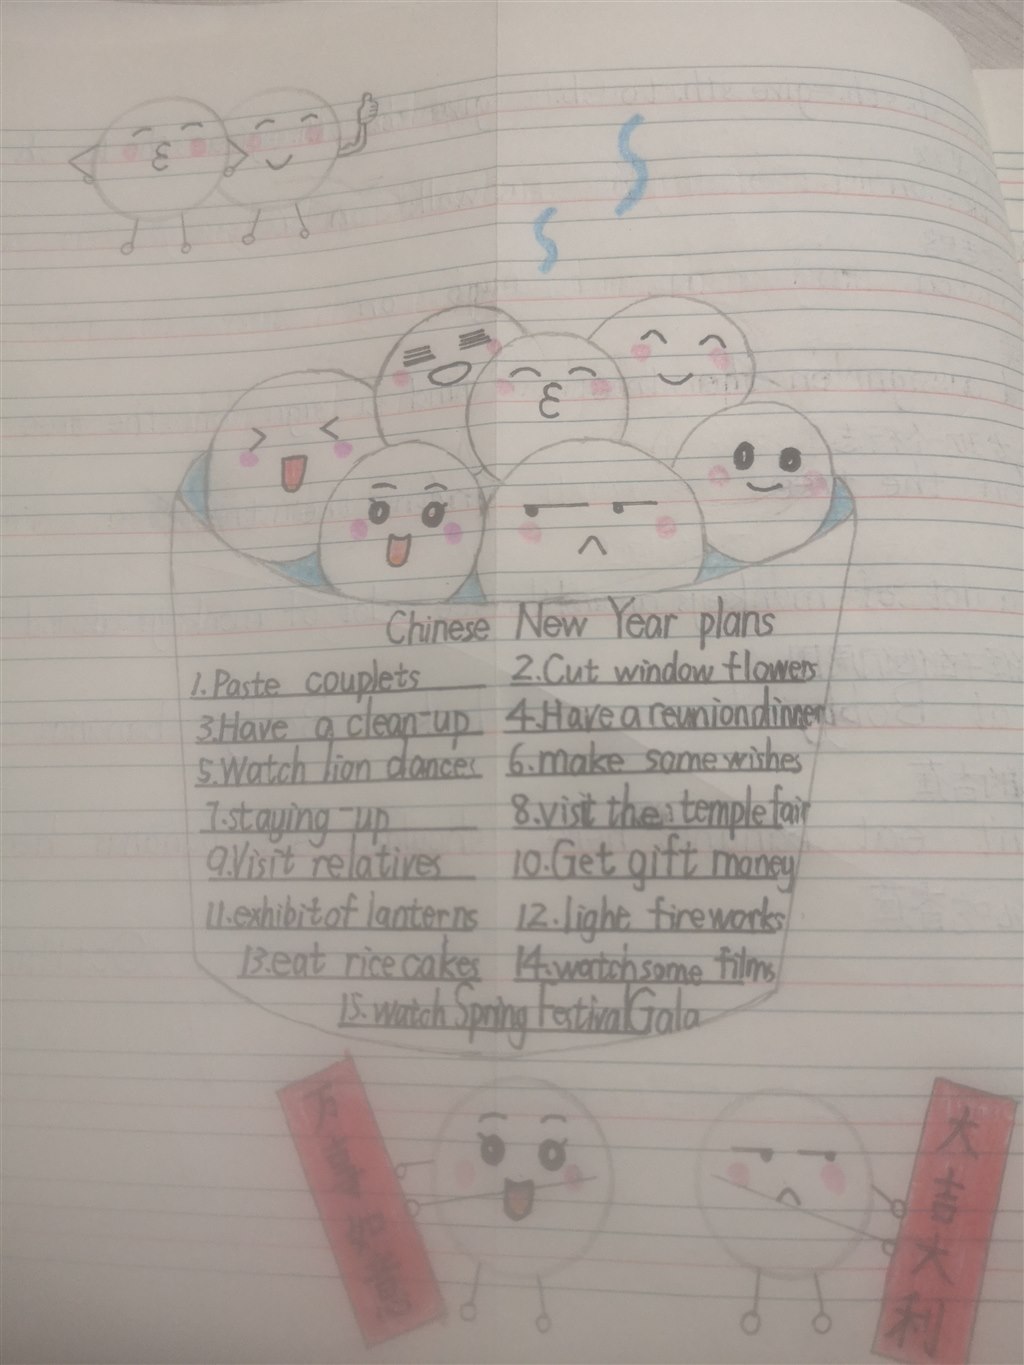 Chinese New Year plans
1. Paste couplets
2. Cut window flowers
3. Have a clean-up
4. Have a reunion dinner
5. Watch lion dances
6. make some wishes
7. staying-up
8. visit the temple fair
9. Visit relatives
10. Get gift money
11. exhibit of lanterns
12. light fireworks
13. eat rice cakes
14. watch some films
15. watch Spring Festival Gala
万事如意
大吉大利